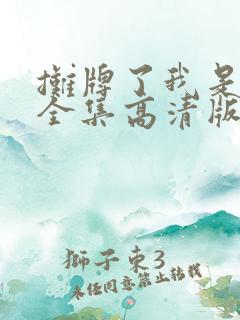 攤牌了我是
全集高清版
獅子東3
未经同意禁止转载